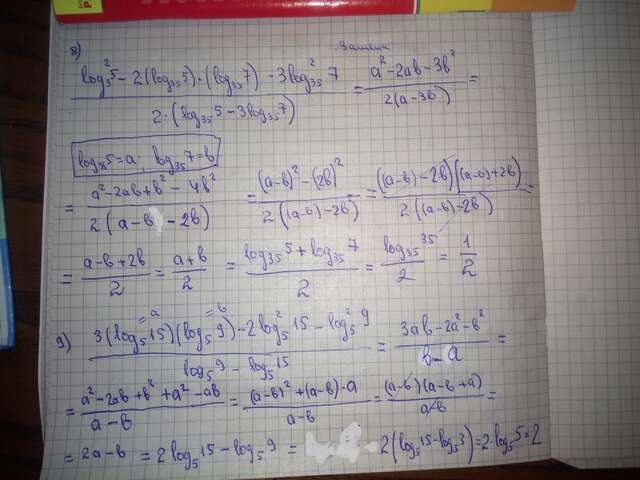 Замена
8) \frac{log²₃₅5 - 2(log₃₅5)·(log₃₅7) - 3log²₃₅7}{2·(log₃₅5 - 3log₃₅7)} = \frac{a² - 2ab - 3b²}{2(a - 3b)} =
log₃₅5 = a log₃₅7 = b
= \frac{a² 2ab + b² - 4b²}{2(a - b - 2b)} = \frac{(a-b)² - (2b)²}{2((a-b) - 2b)} = \frac{((a-b) - 2b)((a-b) + 2b)}{2((a-b) - 2b)} =
= \frac{a - b + 2b}{2} = \frac{a + b}{2} = \frac{log₃₅5 + log₃₅7}{2} = \frac{log₃₅35}{2} = \frac{1}{2}
= a = b
9) \frac{3(log₅15)(log₅9) - 2log²₅15 - log²₅9}{log₅9 - log₅15} = \frac{3ab - 2a² - b²}{b - a} =
= \frac{a² - 2ab + b² + a² - ab}{a - b} = \frac{(a-b)² + (a-b)·a}{a - b} = \frac{(a-b)(a - b + a)}{a - b} =
= 2a - b = 2log₅15 - log₅9 = 2(log₅15 - log₅3) = 2log₅5 = 2